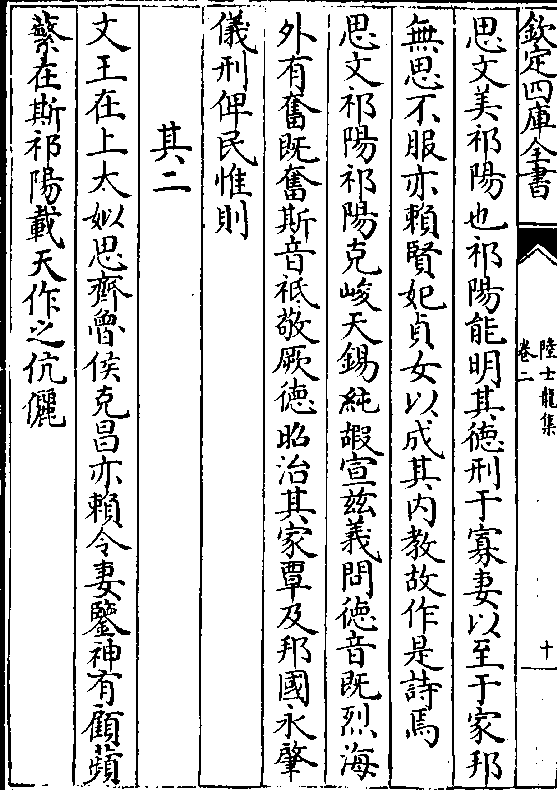 欽定四庫全書
陸士龍集
卷二
十
思文美祁陽也祁陽能明其徳刑于寡妻以至于家邦
無思不服亦賴賢妃貞女以成其内教故作是詩焉
思文祁陽祁陽克峻天錫純嘏宣兹義問徳音既烈海
外有奮既奮斯音祗敬厥徳昭治其家覃及邦國永肇
儀刑俾民惟則
其二
文王在上大姒思齊魯侯克昌亦賴令妻鑒神有顧蘋
蘩在斯祁陽載天作之伉儷